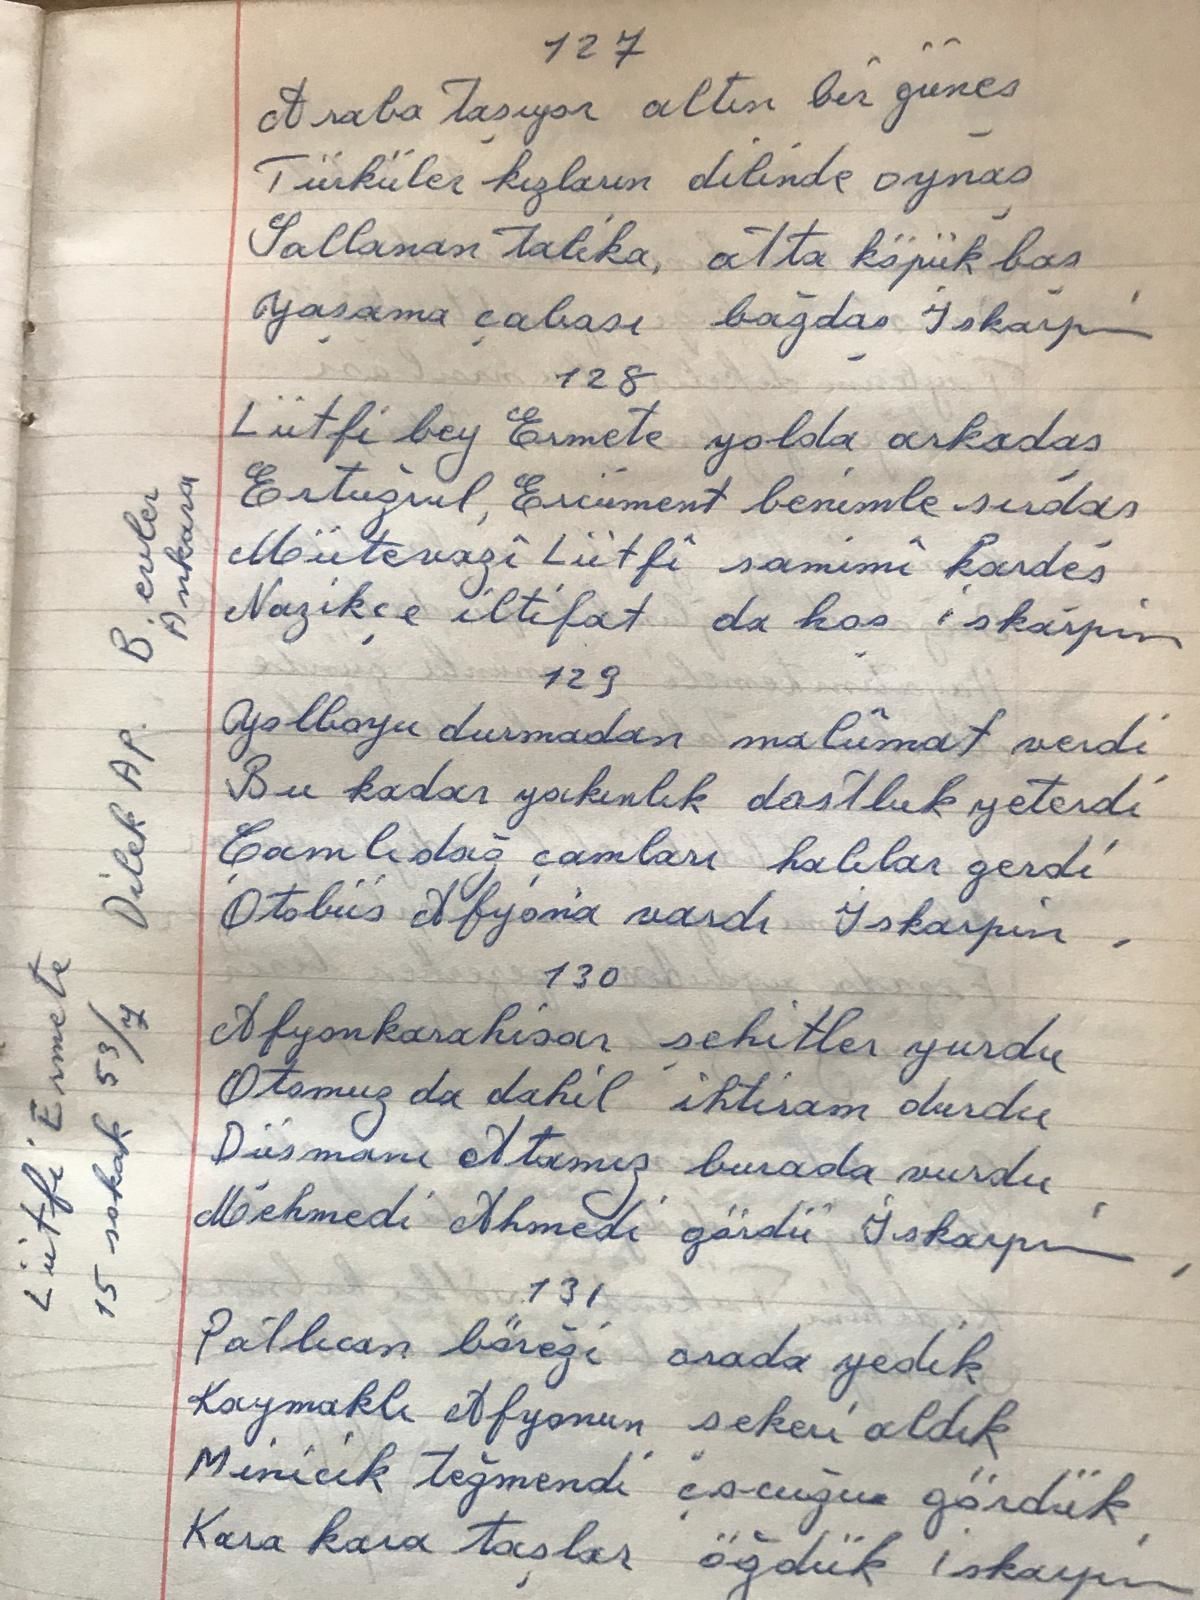 127
Araba taşıyor altın bir güneş
Türküler kızların dilinde oynaş
Sallanan talika, atta köpük baş
Yaşama çabası bağdaş İskarpin
128
Lütfi bey Ermete yolda arkadaş
Ertuğrul, Ercüment benimle sırdaş
Mütevazi Lütfi samimi kardeş
Nazikçe iltifat da hoş iskarpin
129
Yolboyu durmadan malûmat verdi
Bu kadar yakınlık dostluk yeterdi
Çamlıdağ çamları halılar gerdi
Otobüs Afyona vardı İskarpin,
130
Afyonkarahisar şehitler yurdu
Otomuz da dahil ihtiram durdu
Düşmanı Atamız burada vurdu
Mehmedi Ahmedi gördü İskarpin,
131
Patlıcan böreği orada yedik
Kaymaklı Afyonun şekeri aldık
Minicik teğmendi çocuğu gördük
Kara kara taşlar öğdük iskarpin
Lütfi Ermete
15 sokak 53/7 Dilek Ap. B. evler
Ankara